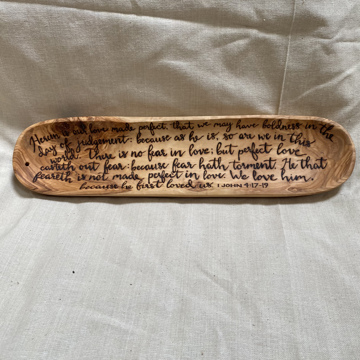 Herein is our love made perfect, that we may have boldness in the
day of judgement: because as he is, so are we in this
world. There is no fear in love; but perfect love
casteth out fear: because fear hath torment. He that
feareth is not made perfect in love. We love him,
because he first loved us. 1 JOHN 4:17-19